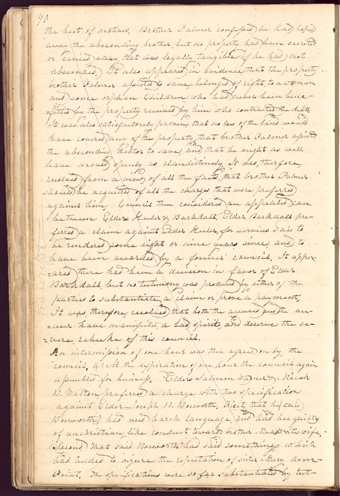 90
the best of motives. Brother Palmer confessed he had helped
away the absconding brother but no property had been secreted
or carried away that was legally tangible if he had not
absconded. It also appeared in evidence that the property
brother Palmer assisted to save belonged of right to a woman
and some orphan children who had never been bene-
fited by the property received by him who contracted the debts
It was also satisfactorily proven that no law of the land would
have covered any of the property, that brother Palmer assisted
the absconding debtor to save, and that he might as well
have moved openly as clandestinely. It was, therefore,
resolved from a view of all the facts, that brother Palmer
should be acquitted of all the charges that were preferred
against him. Council then considered an appealed case
between Elders Keeler & Barkdall. Elder Barkdall pre-
ferred a claim against Elder Keeler for service said to
be rendered some eight or nine years since, and to
have been awarded by a former council. It appe-
ared there had been a decision in favor of Elder
Barkdall but no testimony was produced by either of the
parties to substantiate a claim or prove a payment,
It was, therefore, resolved that both the accused and the ac-
cuser have manifested a bad spirit, and deserve the se-
vere rebuke of this council.
An intermission of one hour was then agreed on by the
council, & At the expiration of one hour the council again
assembled for business. Elders Salmon Warner & Micah
B. Welton preferred a charge with two specification
against Elder Joseph B. Bosworth, First that he, said
Bosworth, had used harsh language, and said he guilty
of unchristian like conduct toward brother and his wife.
Second that said Bosworth had said somethings which
had tended to injure the reputation of sister Mary
The specifications were so far substantiated by test-